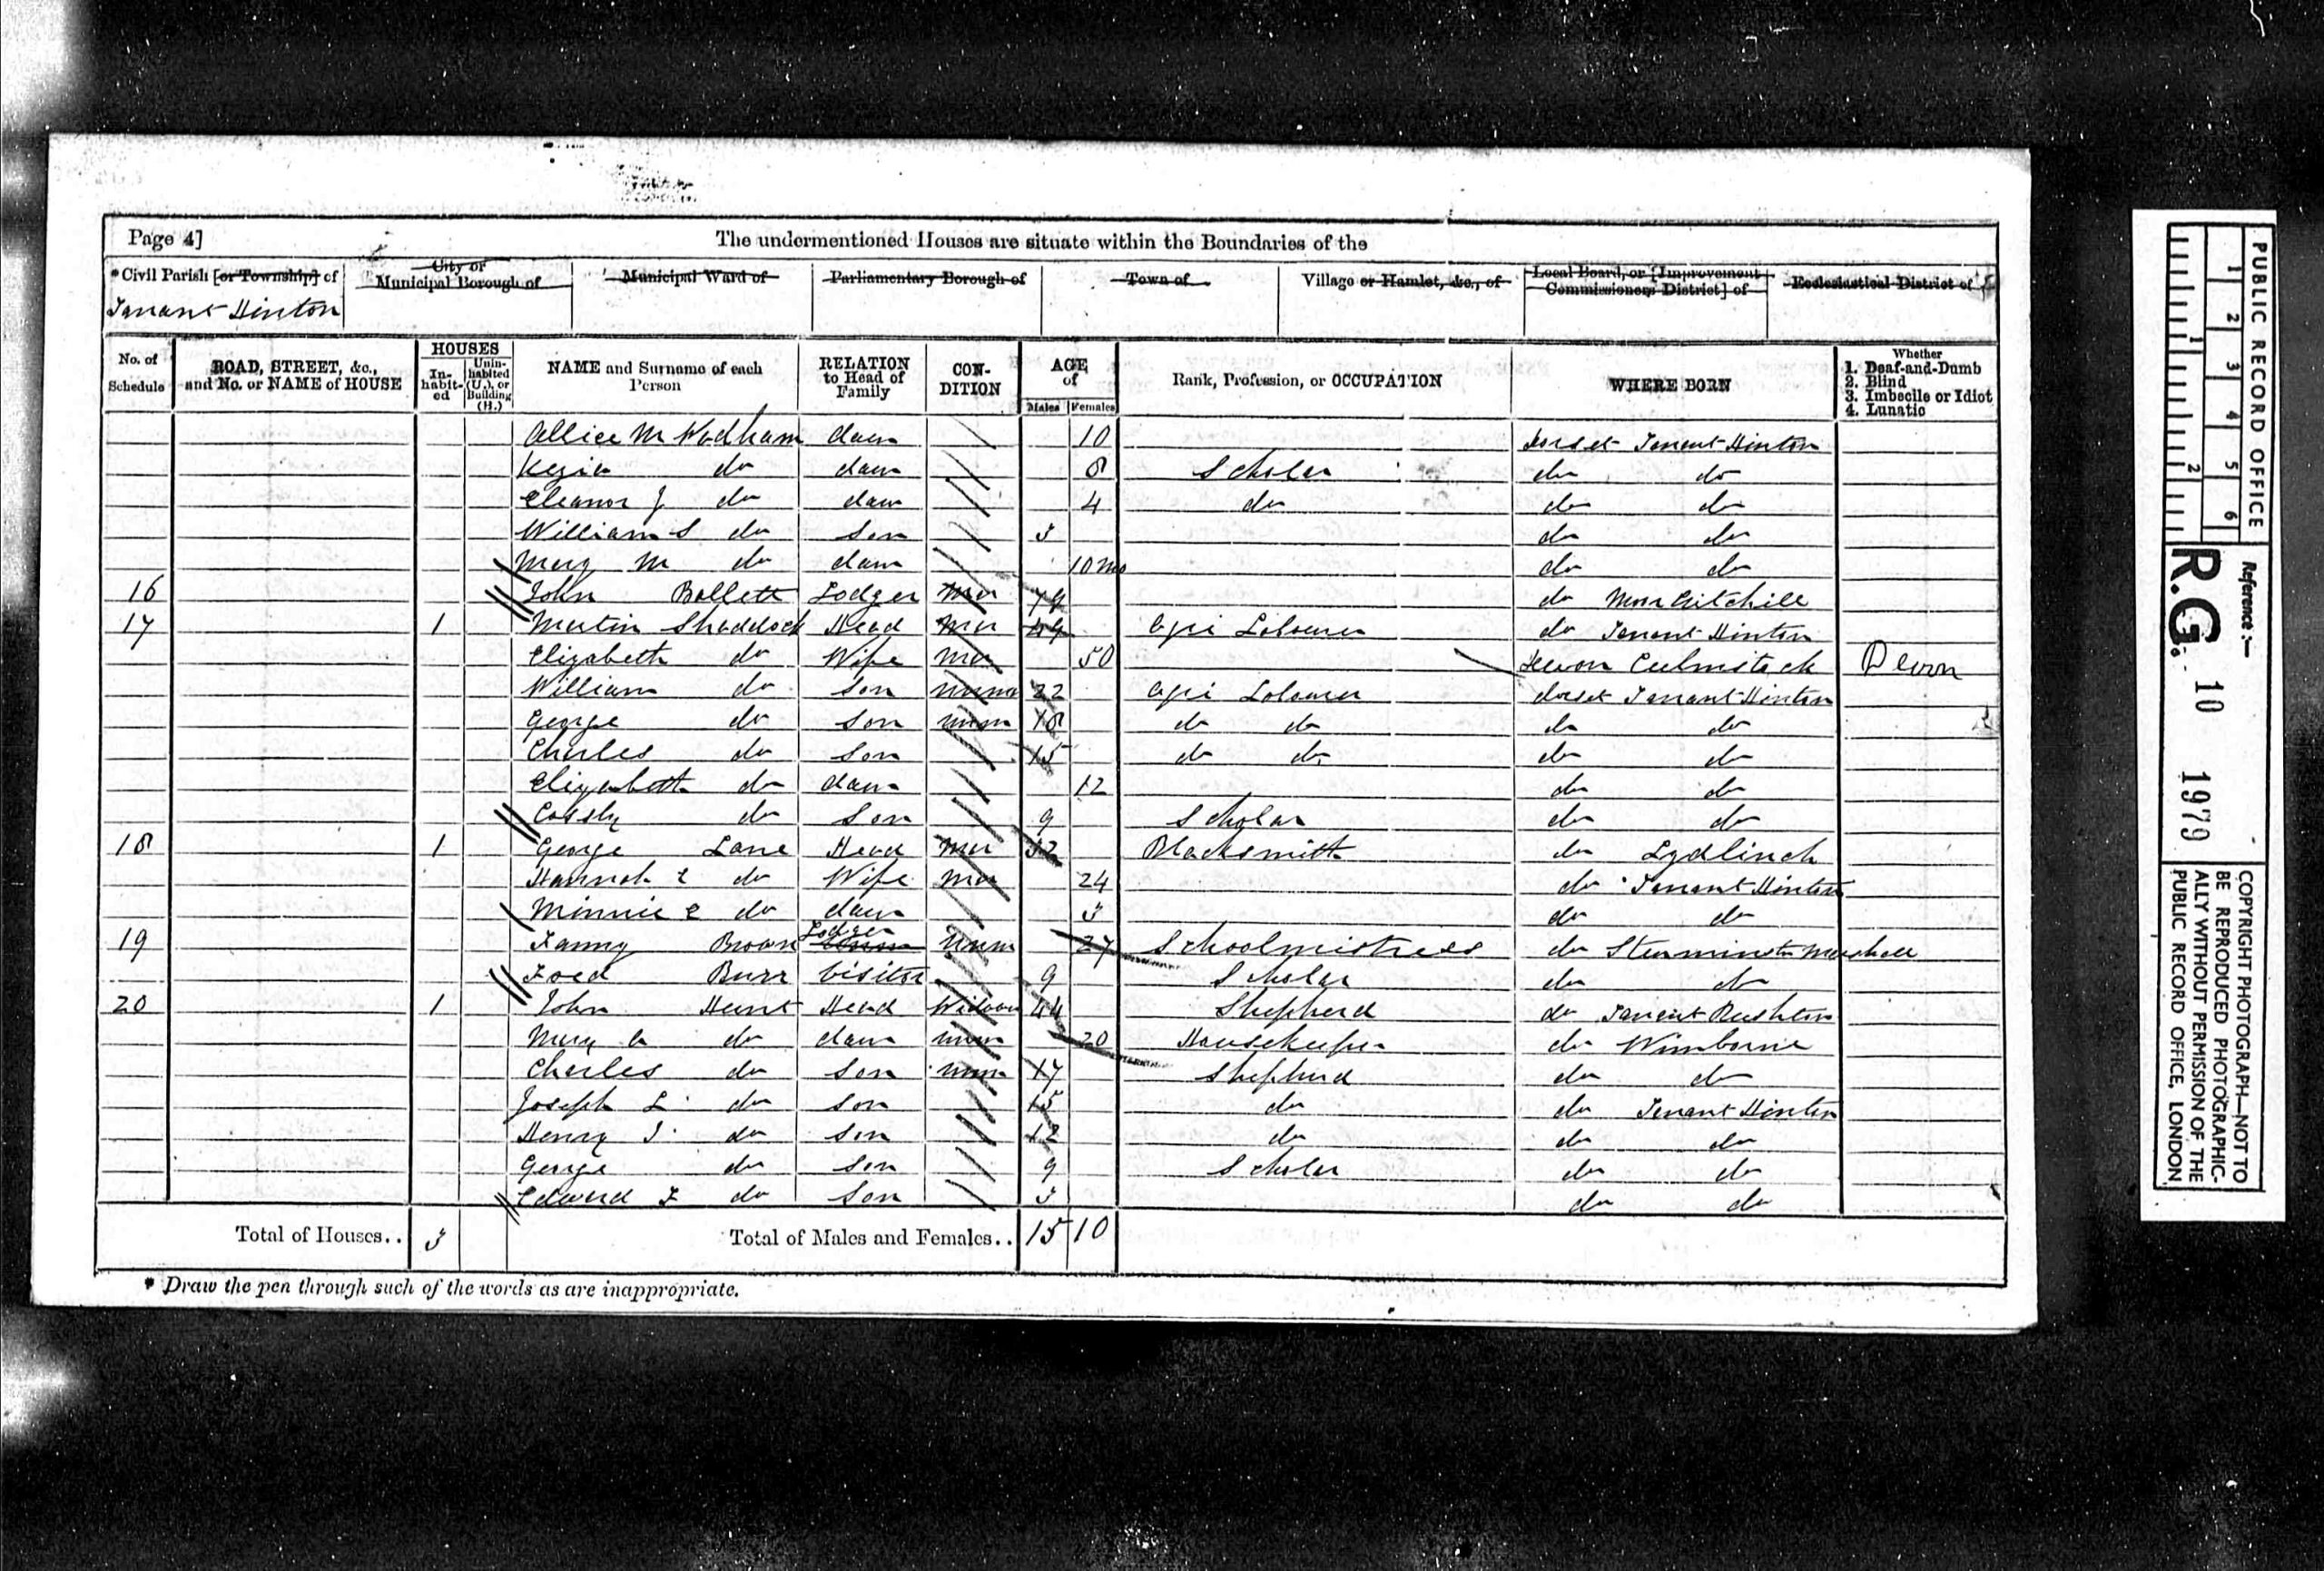 Page 4]
The undermentioned Houses are situate within the Boundaries of the
*Civil Parish [or Township] of
City or Municipal Borough of
Municipal Ward of
Parliamentary Borough of
Town of
Village or Hamlet, &c., of
Local Board, or [Improvement Commissioners District] of
Ecclesiastical District of
Tarrant Hinton
No. of Schedule
ROAD, STREET, &c., and No. or NAME of HOUSE
HOUSES
Inhabited
Uninhabited (U.), or Building (B.)
NAME and Surname of each Person
RELATION to Head of Family
CONDITION
AGE of
Males
Females
Rank, Profession, or OCCUPATION
WHERE BORN
Whether
1. Deaf-and-Dumb
2. Blind
3. Imbecile or Idiot
4. Lunatic
Allice M Wadham daur 10 Dorset Tarrant Hinton
Kezia do daur 8 Scholar do do
Eleanor J do daur 4 do do do
William S do Son 3 do do
Mary M do daur 10 mo do do
16 John Bollett Lodger Mar 79 do Moor Critchill
17 1 Martin Shaddock Head Mar 49 Agri Labourer do Tarrant Hinton
Elizabeth do Wife Mar 50 Devon Culmstock Devon
William do Son unm 22 Agri Labourer dorset Tarrant Hinton
George do Son unm 18 do do do do
Charles do Son 15 do do do do
Elizabeth do daur 12 do do
do Son 9 Scholar do do
18 1 George Lane Head Mar 32 Blacksmith do Lydlinch
Hannah E do Wife Mar 24 do Tarrant Hinton
Minnie E do daur 3 do do
19 Fanny Brown Lodger Unm 27 Schoolmistress do Sturminster Marshall
Fred Burr Visitor 9 Scholar do do
20 1 John Hunt Head Widower 44 Shepherd do Tarrant Rushton
Mary A do daur unm 20 Housekeeper do Wimborne
Charles do Son unm 17 Shepherd do do
Joseph L do Son 15 do do Tarrant Hinton
Henry J do Son 12 do do do
George do Son 9 Scholar do do
Edward F do Son 3 do do
Total of Houses.. 3 Total of Males and Females.. 15 10
* Draw the pen through such of the words as are inappropriate.
PUBLIC RECORD OFFICE
1 2 3 4 5 6
1 2
Reference :—
R.G. 10 1979
COPYRIGHT PHOTOGRAPH—NOT TO
BE REPRODUCED PHOTOGRAPHIC-
ALLY WITHOUT PERMISSION OF THE
PUBLIC RECORD OFFICE, LONDON